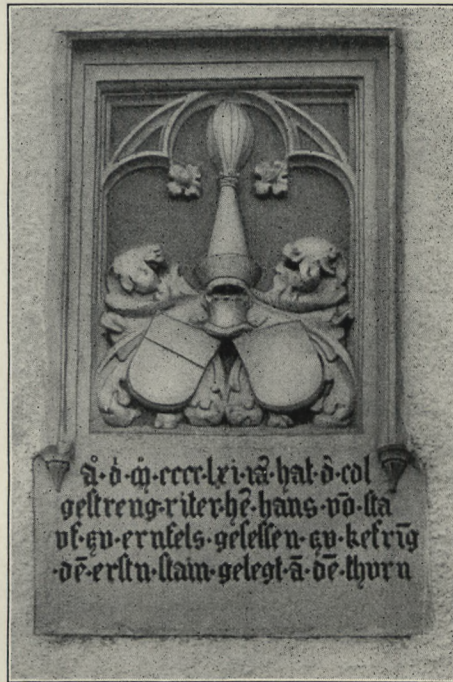 å·d̊·m̊·cccc·lxi·iar̄·hat·d̊·edl
gestreng·riter·he̅·hans·vo̅·sta
vf·zv·ernfels·gesessen·zv·kefri̅g
·de̅·erstn·stain·gelegt·a̅·de̅·thvrn